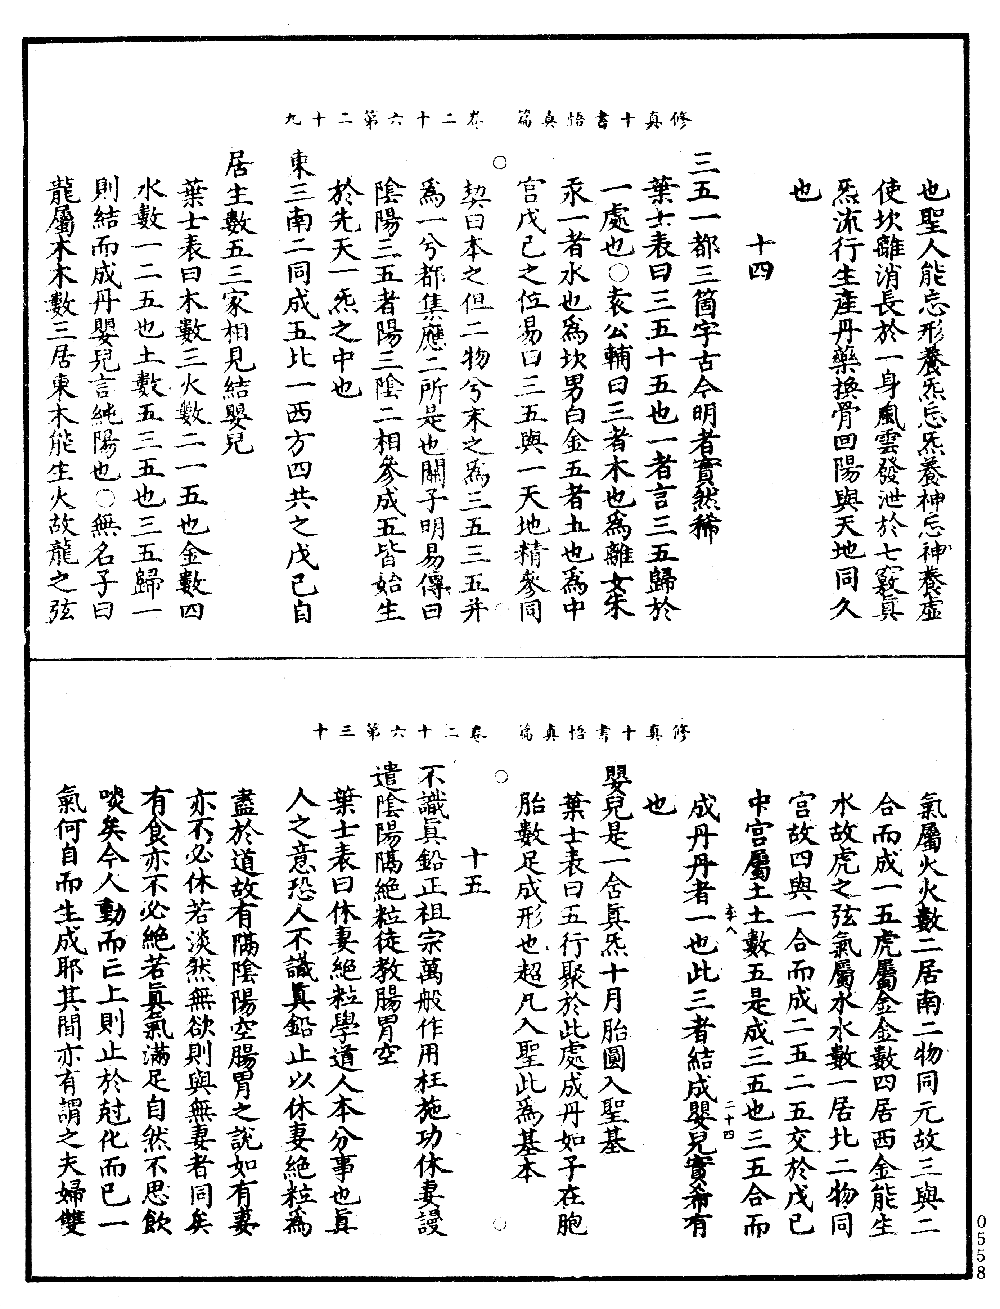 修真十書悟真篇　卷二十六第二十九
也聖人能忘形養炁忘炁養神忘神養虛
使坎離消長於一身風雲發泄於七竅真
炁流行生產丹藥換骨回陽與天地同久
也
十四
三五一都三箇字古今明者實然稀
葉士表曰三五十五也一者言三五歸於
一處也○袁公輔曰三者木也為離女朱
汞一者水也為坎男白金五者土也為中
宮戊己之位易曰三五與一天地精參同
契曰本之但二物兮末之為三五三五并
為一兮都集應二所是也關子明易傳曰
陰陽三五者陽三陰二相參成五皆始生
於先天一炁之中也
東三南二同成五比一西方四共之戊己自
居生數五三家相見結嬰兒
葉士表曰木數三火數二一五也金數四
水數一二五也土數五三五也三五歸一
則結而成丹嬰兒言純陽也○無名子曰
龍屬木木數三居東木能生火故龍之弦
修真十書悟真篇　卷二十六第三十
氣屬火火數二居南二物同元故三與二
合而成一五虎屬金金數四居西金能生
水故虎之弦氣屬水水數一居北二物同
宮故四與一合而成二五二五交於戊己
中宮屬土土數五是成三五也三五合而
成丹丹者一也此三者結成嬰兒實希有
也
嬰兒是一含真炁十月胎圓入聖基
葉士表曰五行聚於此處成丹如子在胞
胎數足成形也超凡入聖此為基本
十五
不識真鉛正祖宗萬般作用枉施功休妻謾
遣陰陽隔絕粒徒教腸胃空
葉士表曰休妻絕粒學道人本分事也真
人之意恐人不識真鉛止以休妻絕粒為
盡於道故有隔陰陽空腸胃之說如有妻
亦不必休若淡然無欲則與無妻者同矣
有食亦不必絕若真氣滿足自然不思飲
啖矣今人動而亡上則止於尅化而已一
氣何自而生成耶其間亦有謂之夫婦雙
二十四
0558